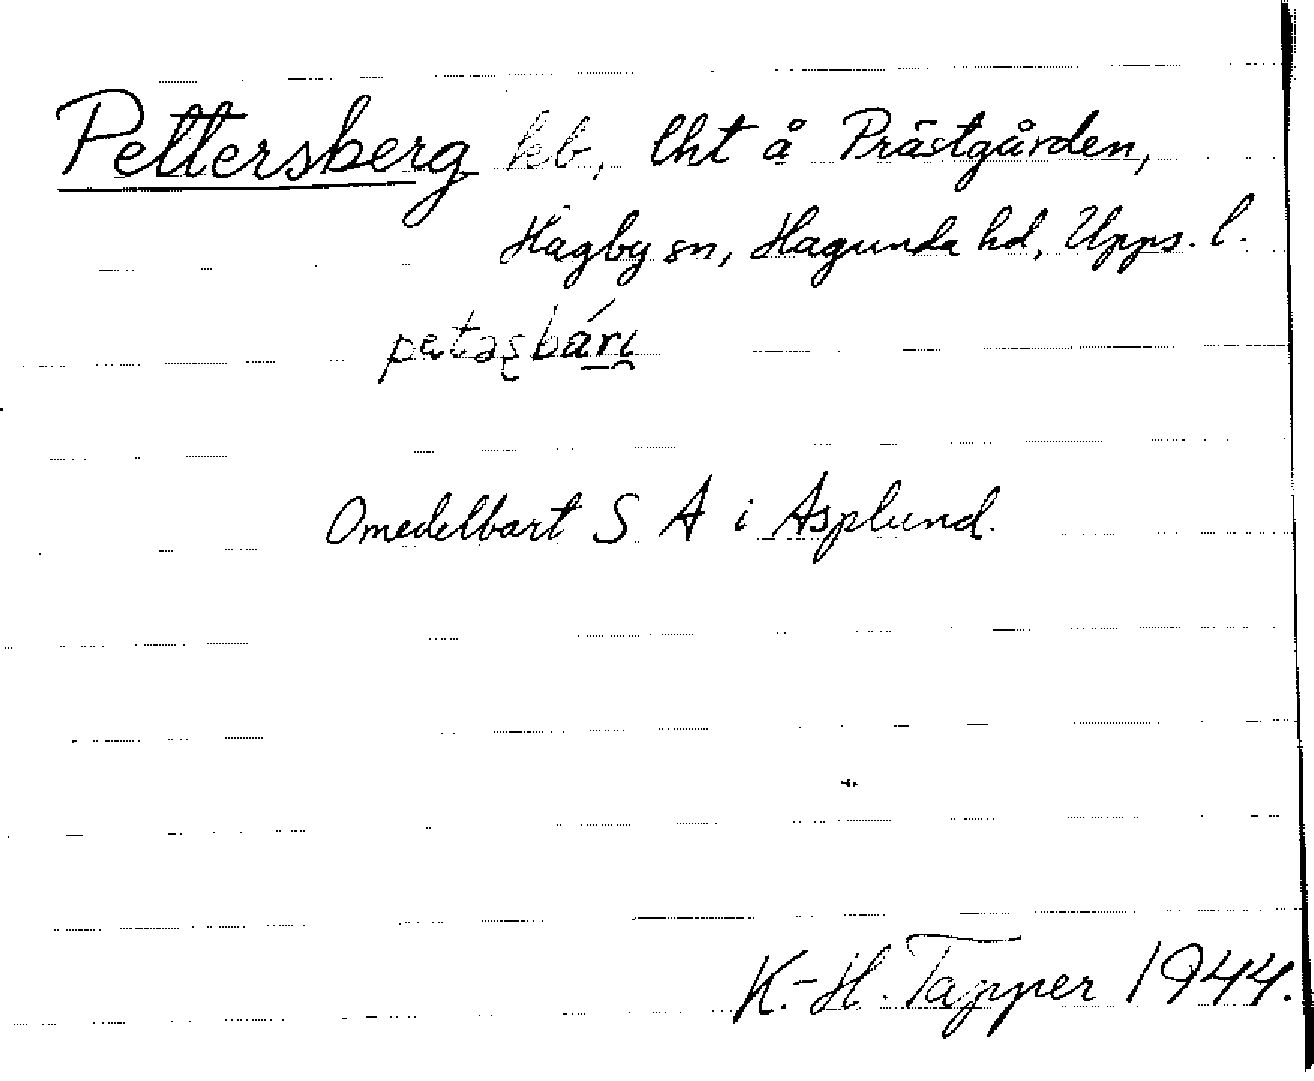 Pettersberg hb, lht å Prästgården,
Hagby sn, Hagunda hd, Upps. l.
petəʂbári
Omedelbart S A i Asplund.
K.-H. Tapper 1944.